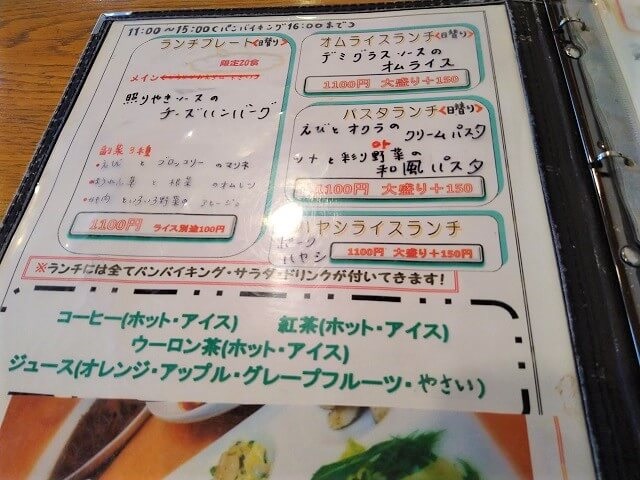 11:00～15:00くパンバイキング16:00まで>
ランチプレート<日替り>
限定20食
メイン
照りやきソースの
チーズハンバーグ
副菜3種
・えびとブロッコリーのマリネ
・ほうれん草と根菜のオムレツ
といろいろ野菜の
1100円 ライス別途100円
オムライスランチ<日替り>
デミグラスソースの
オムライス
1100円 大盛り+150
パスタランチ<日替り>
えびとオクラのクリームパスタ
or
ツナと彩り野菜の
和風パスタ
1100円 大盛り+150
ハヤシライスランチ
ポーク
ハヤシ
1100円 大盛り+150円
※ランチには全てパンバイキング・サラダ・ドリンクが付いてきます!
コーヒー(ホット・アイス) 紅茶(ホット・アイス)
ウーロン茶(ホット・アイス)
ジュース(オレンジ・アップル・グレープフルーツ・やさい)